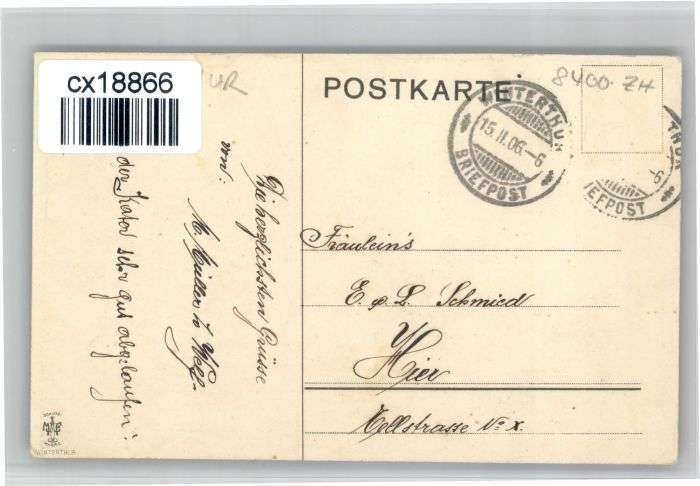 cx18866
UR
POSTKARTE
8400 ZH
WINTERTHUR
15.II.06.-6
BRIEFPOST
THUR
-6
IEFPOST
Die herzlichsten Grüsse
von:
M. Müller &
der Kater sehr gut abgelaufen!
Fräulein's
E. & L. Schmied
Hier
Tellstrasse No X.
WINTERTHUR